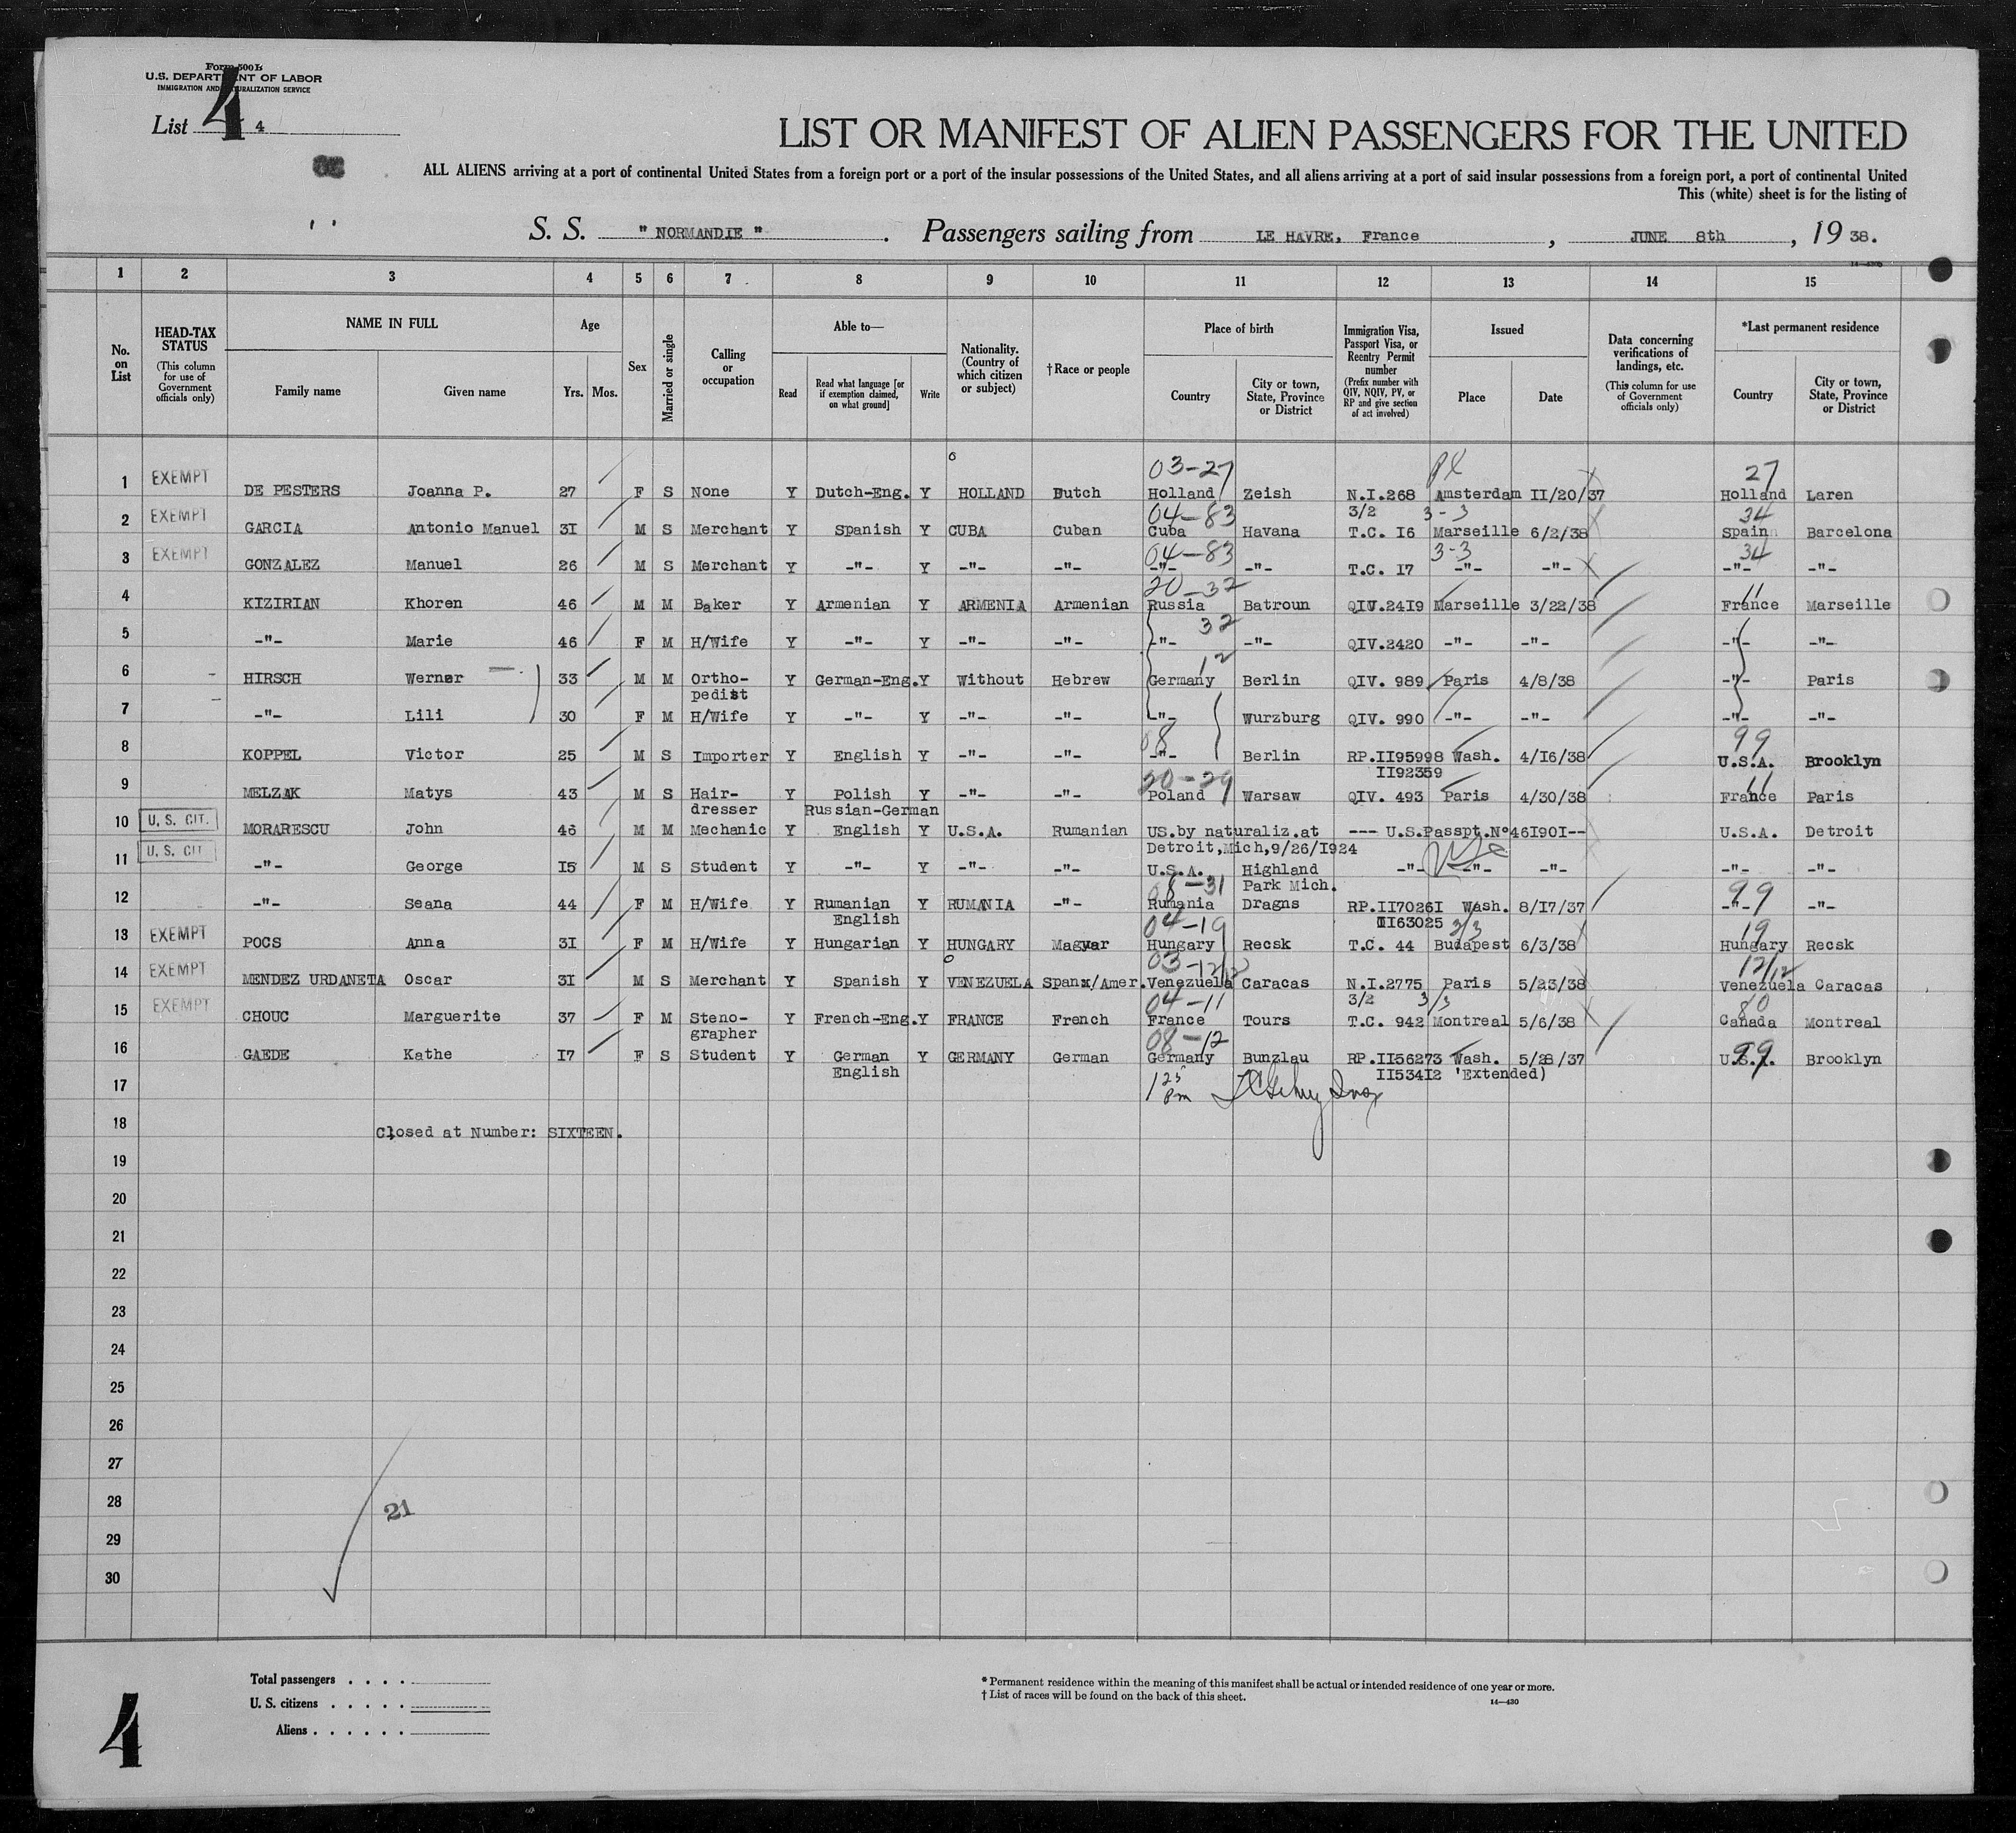 Form 500 L
U.S. DEPARTMENT OF LABOR
IMMIGRATION AND NATURALIZATION SERVICE
List 4 4
LIST OR MANIFEST OF ALIEN PASSENGERS FOR THE UNITED
ALL ALIENS arriving at a port of continental United States from a foreign port or a port of the insular possessions of the United States, and all aliens arriving at a port of said insular possessions from a foreign port, a port of continental United
This (white) sheet is for the listing of
S. S. " NORMANDIE " . Passengers sailing from LE HAVRE, France , JUNE 8th , 19 38.
1 2 3 4 5 6 7 8 9 10 11 12 13 14 15
No. on List
HEAD-TAX STATUS
(This column for use of Government officials only)
NAME IN FULL
Family name Given name
Age
Yrs. Mos.
Sex
Married or single
Calling or occupation
Able to—
Read
Read what language [or if exemption claimed, on what ground]
Write
Nationality. (Country of which citizen or subject)
†Race or people
Place of birth
Country
City or town, State, Province or District
Immigration Visa, Passport Visa, or Reentry Permit number
(Prefix number with QIV, NQIV, PV, or RP and give section of act involved)
Issued
Place Date
Data concerning verifications of landings, etc.
(This column for use of Government officials only)
*Last permanent residence
Country
City or town, State, Province or District
03-27 27
1 EXEMPT DE PESTERS Joanna P. 27 F S None Y Dutch-Eng. Y HOLLAND Dutch Holland Zeish N.I.268 Amsterdam II/20/37 Holland Laren
04-83 3/2 3-3 34
2 EXEMPT GARCIA Antonio Manuel 3I M S Merchant Y Spanish Y CUBA Cuban Cuba Havana T.C. I6 Marseille 6/2/38 Spain Barcelona
04-83 3-3 34
3 EXEMPT GONZALEZ Manuel 26 M S Merchant Y -"- Y -"- -"- -"- -"- T.C. I7 -"- -"- -"- -"-
20-32 11
4 KIZIRIAN Khoren 46 M M Baker Y Armenian Y ARMENIA Armenian Russia Batroun QIV.24I9 Marseille 3/22/38 France Marseille
32
5 -"- Marie 46 F M H/Wife Y -"- Y -"- -"- -"- -"- QIV.2420 -"- -"- -"- -"-
12
6 HIRSCH Werner 33 M M Ortho- Y German-Eng. Y Without Hebrew Germany Berlin QIV. 989 Paris 4/8/38 -"- Paris
pedist
7 -"- Lili 30 F M H/Wife Y -"- Y -"- -"- -"- Wurzburg QIV. 990 -"- -"- -"- -"-
08 99
8 KOPPEL Victor 25 M S Importer Y English Y -"- -"- -"- Berlin RP.II95998 Wash. 4/16/38 U.S.A. Brooklyn
II92359
20-29 11
9 MELZAK Matys 43 M S Hair- Y Polish Y -"- -"- Poland Warsaw QIV. 493 Paris 4/30/38 France Paris
dresser Russian-German
10 U. S. CIT. MORARESCU John 46 M M Mechanic Y English Y U.S.A. Rumanian US.by naturaliz.at --- U.S.Passpt.N°46I90I-- U.S.A. Detroit
Detroit,Mich,9/26/I924
11 U. S. CIT -"- George I5 M S Student Y -"- Y -"- -"- U.S.A. Highland -"- -"- -"- -"- -"-
Park Mich.
08-31 99
12 -"- Seana 44 F M H/Wife Y Rumanian Y RUMANIA -"- Rumania Dragns RP.II7026I Wash. 8/I7/37 -"- -"-
English II63025
04-19 3/3 19
13 EXEMPT POCS Anna 3I F M H/Wife Y Hungarian Y HUNGARY Magyar Hungary Recsk T.C. 44 Budapest 6/3/38 Hungary Recsk
03-12/12 12/12
14 EXEMPT MENDEZ URDANETA Oscar 3I M S Merchant Y Spanish Y VENEZUELA Span/Amer. Venezuela Caracas N.I.2775 Paris 5/23/38 Venezuela Caracas
04-11 3/2 3/3 80
15 EXEMPT CHOUC Marguerite 37 F M Steno- Y French-Eng. Y FRANCE French France Tours T.C. 942 Montreal 5/6/38 Canada Montreal
grapher
08-12 99
16 GAEDE Kathe I7 F S Student Y German Y GERMANY German Germany Bunzlau RP.II56273 Wash. 5/28/37 U.S.A. Brooklyn
English II534I2 'Extended)
17 1 25 Pm
18 Closed at Number: SIXTEEN.
19
20
21
22
23
24
25
26
27
28
21
29
30
Total passengers . . . .
U. S. citizens . . . . .
Aliens . . . . . .
* Permanent residence within the meaning of this manifest shall be actual or intended residence of one year or more.
† List of races will be found on the back of this sheet.
14—430
4